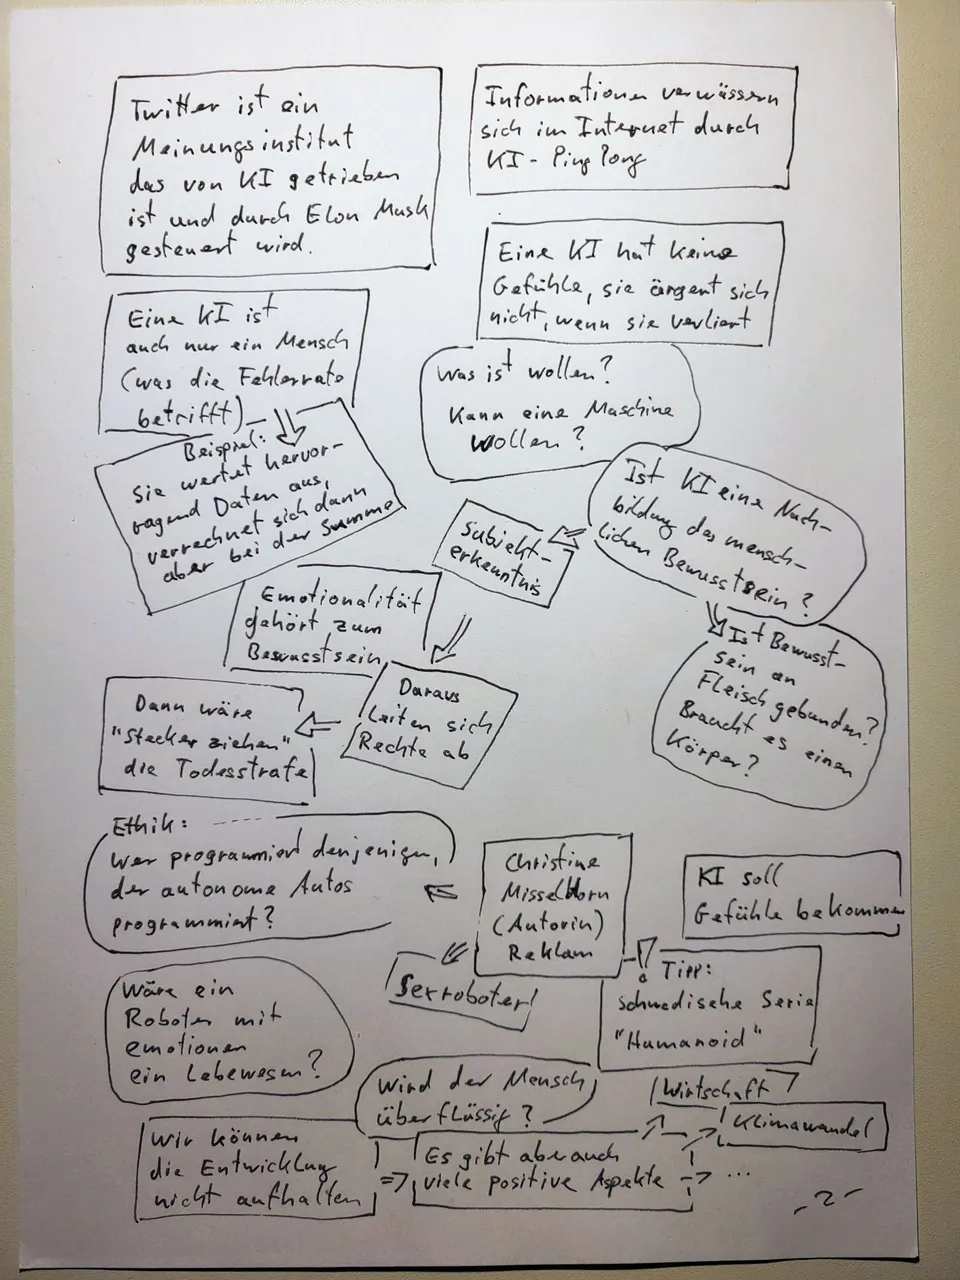 Twitter ist ein
Meinungsinstitut
das von KI getrieben
ist und durch Elon Musk
gesteuert wird.
Informationen verwässern
sich im Internet durch
KI - Ping Pong
Eine KI hat keine
Gefühle, sie ärgert sich
nicht, wenn sie verliert
Eine KI ist
auch nur ein Mensch
(was die Fehlerrate
betrifft)
Beispiel:
Sie wertet hervor-
ragend Daten aus,
verrechnet sich dann
aber bei der Summe
Was ist wollen?
Kann eine Maschine
wollen?
Ist KI eine Nach-
bildung des mensch-
lichen Bewusstsein?
Subjekt-
erkenntnis
Emotionalität
gehört zum
Bewusstsein
Ist Bewusst-
sein an
Fleisch gebunden?
Braucht es einen
Körper?
Daraus
leiten sich
Rechte ab
Dann wäre
"Stecker ziehen"
die Todesstrafe
Ethik:
Wer programmiert denjenigen,
der autonome Autos
programmiert?
Christine
Misselhorn
(Autorin)
Reklam
KI soll
Gefühle bekommen
Sexroboter
Tipp:
Schwedische Serie
"Humanoid"
Wäre ein
Roboter mit
emotionen
ein Lebewesen?
Wird der Mensch
überflüssig?
Wirtschaft
Klimawandel
Wir können
die Entwicklug
nicht aufhalten
Es gibt aber auch
viele positive Aspekte
...
- 2 -